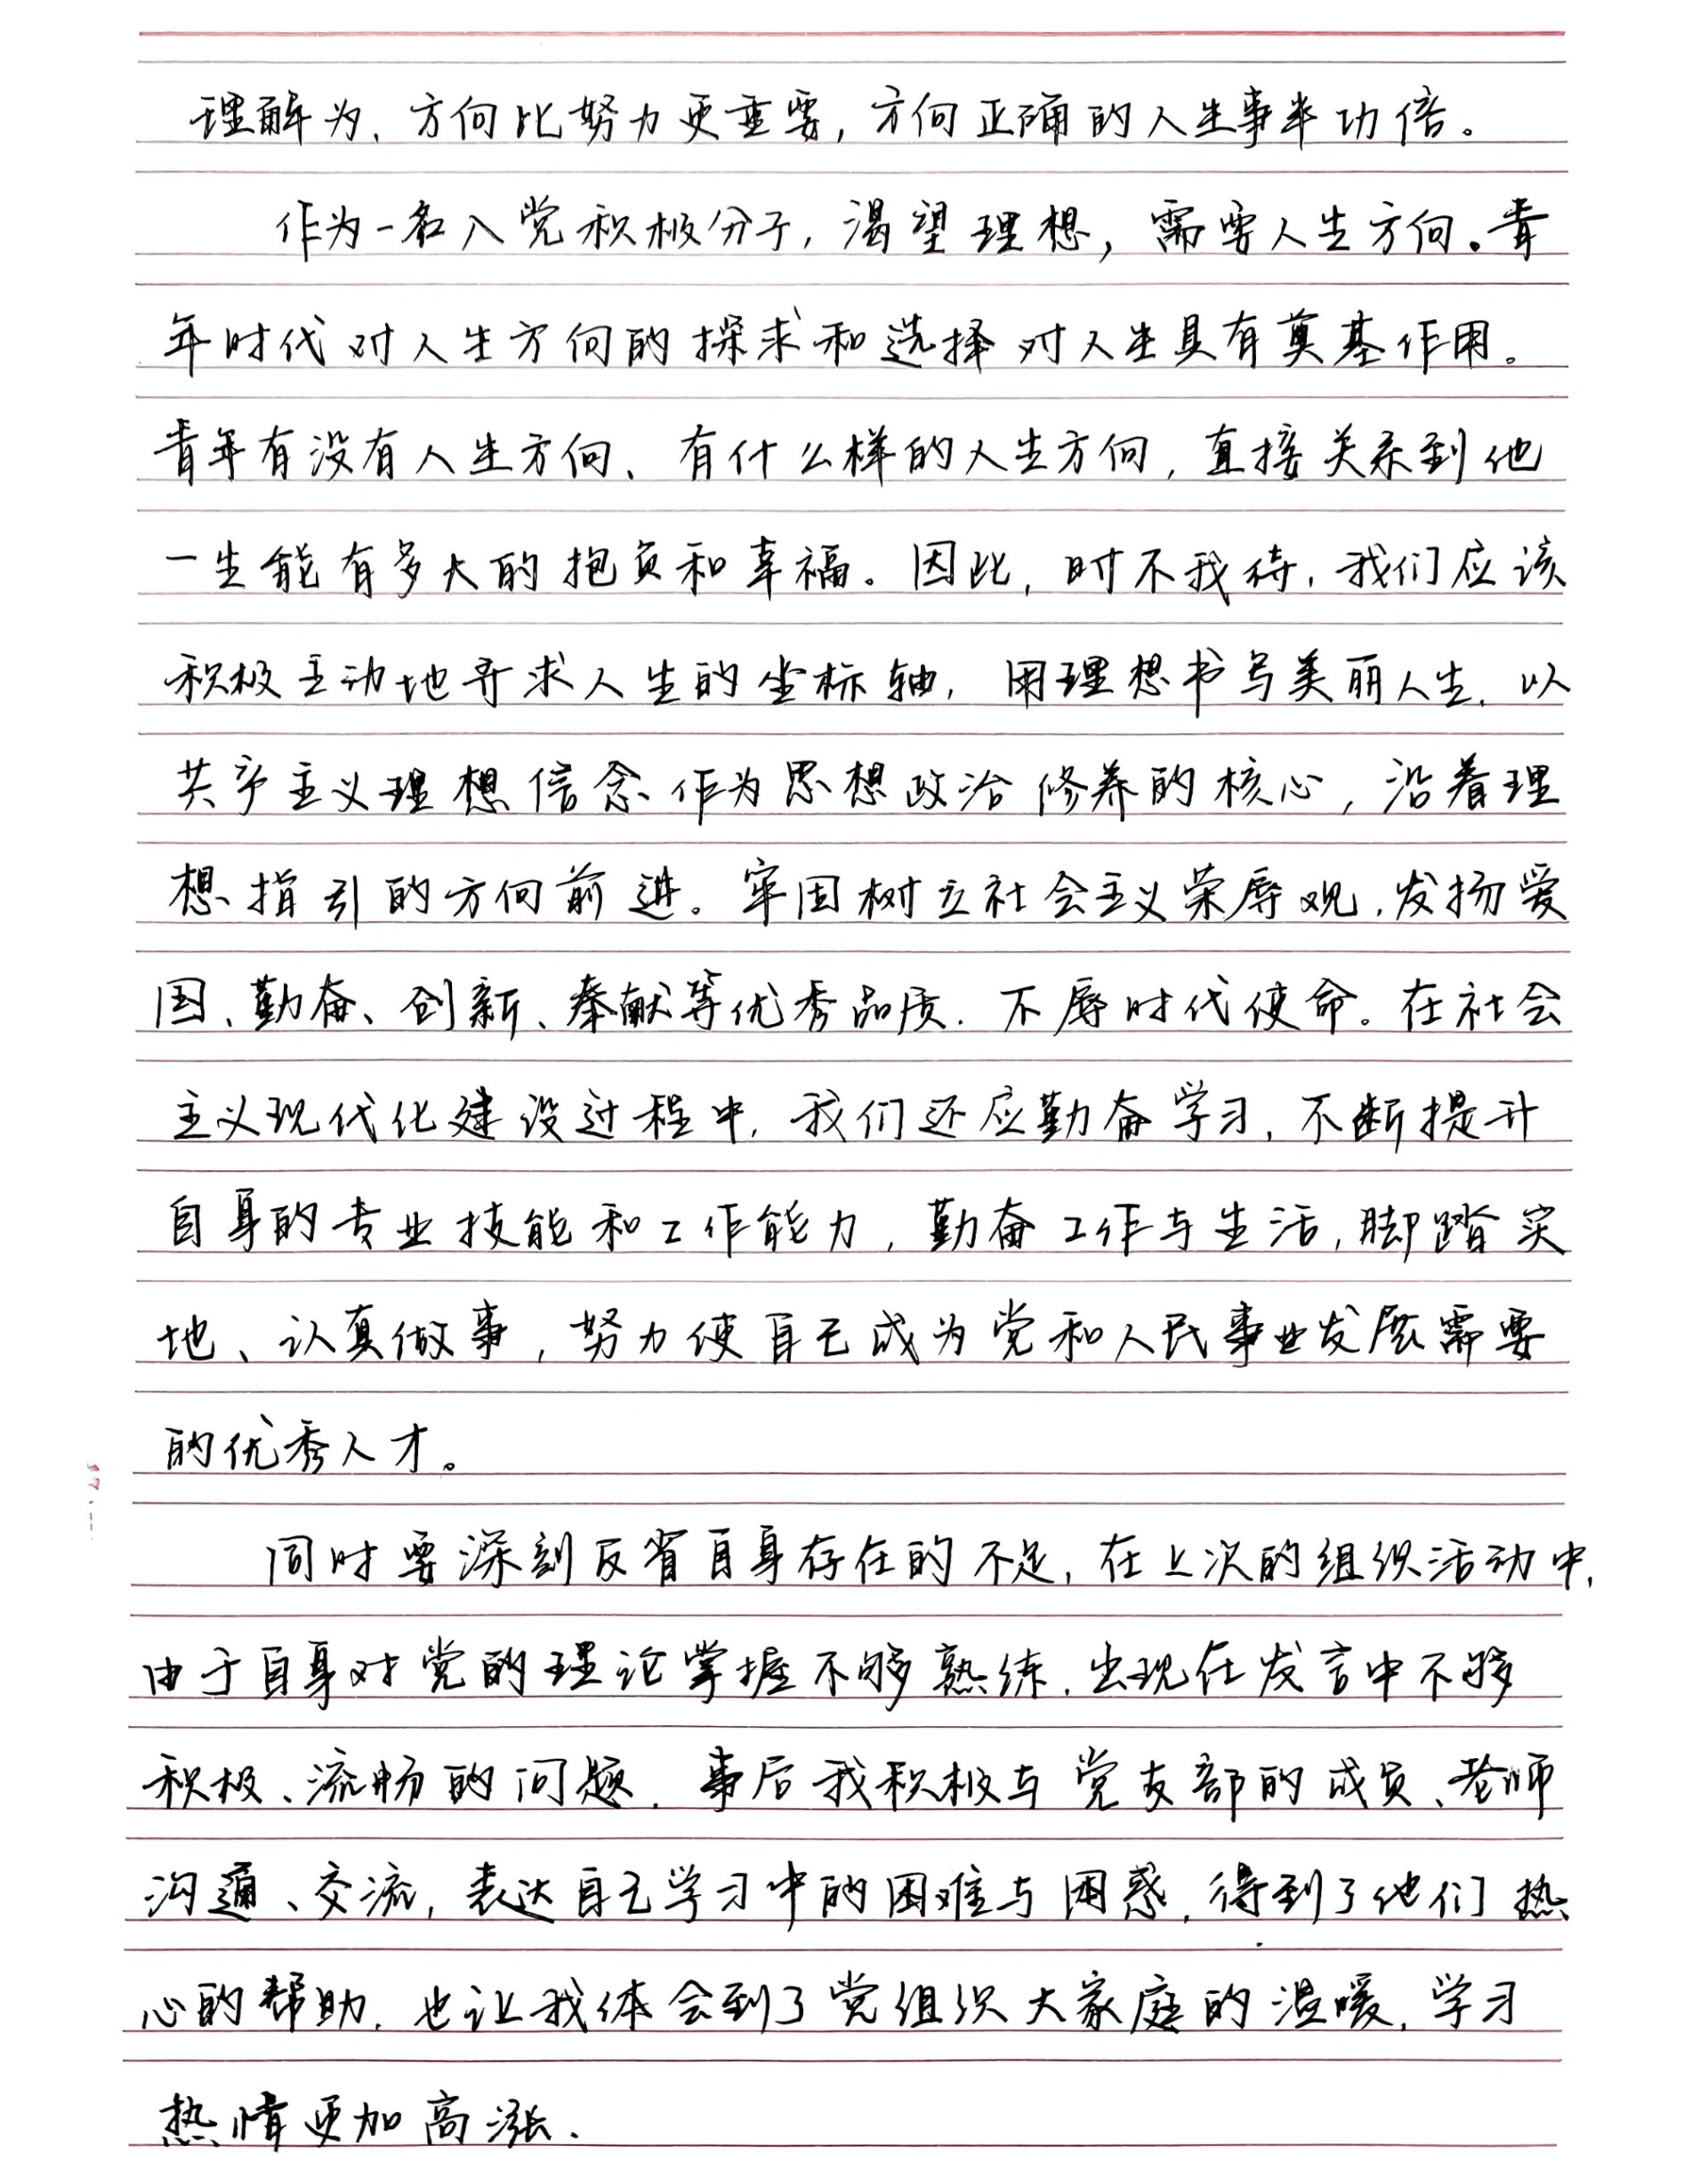 理解为、方向比努力更重要，方向正确的人生事半功倍。
作为一名入党积极分子，渴望理想，需要人生方向。青
年时代对人生方向的探求和选择对人生具有奠基作用。
青年有没有人生方向、有什么样的人生方向，直接关系到他
一生能有多大的抱负和幸福。因此，时不我待，我们应该
积极主动地寻求人生的坐标轴，用理想书写美丽人生，以
共产主义理想信念作为思想政治修养的核心，沿着理
想指引的方向前进。牢固树立社会主义荣辱观，发扬爱
国、勤奋、创新、奉献等优秀品质，不辱时代使命。在社会
主义现代化建设过程中，我们还应勤奋学习，不断提升
自身的专业技能和工作能力，勤奋工作与生活，脚踏实
地、认真做事，努力使自己成为党和人民事业发展需要
的优秀人才。
同时要深刻反省自身存在的不足，在上次的组织活动中，
由于自身对党的理论掌握不够熟练，出现在发言中不够
积极、流畅的问题，事后我积极与党支部的成员、老师
沟通、交流，表达自己学习中的困难与困惑，得到了他们热
心的帮助，也让我体会到了党组织大家庭的温暖，学习
热情更加高涨.